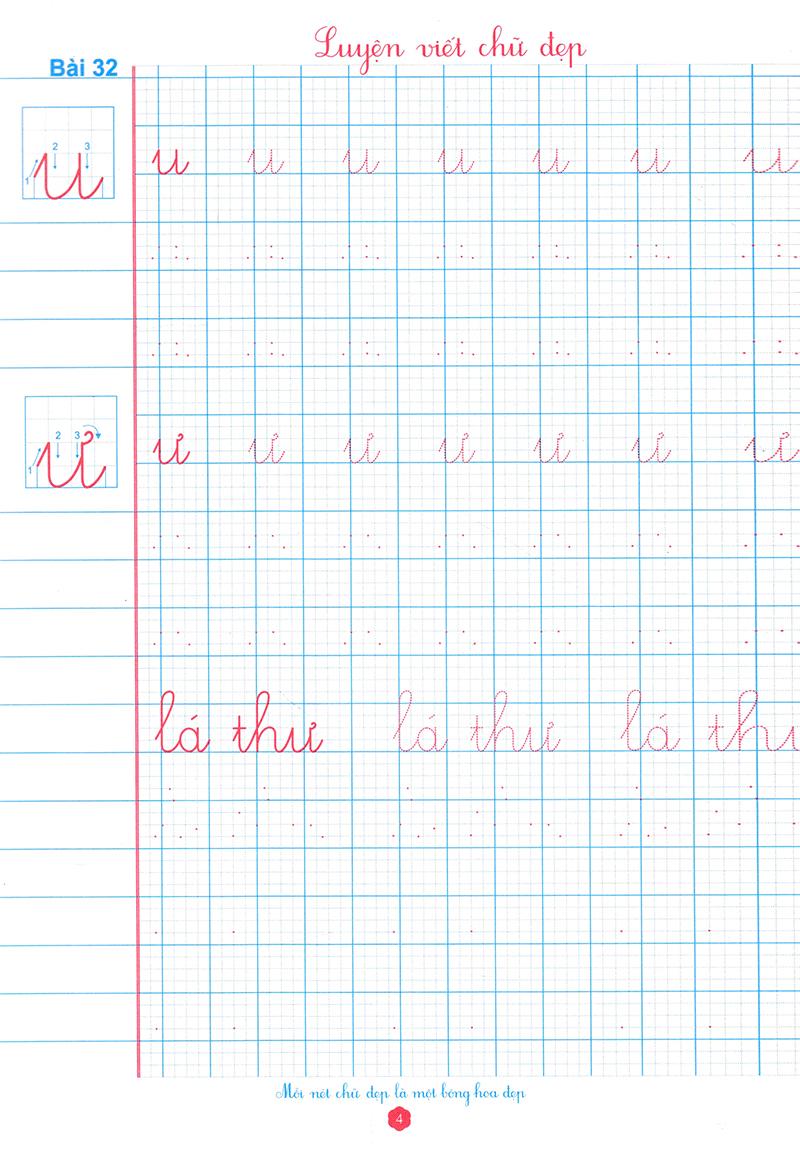 Luyện viết chữ đẹp
Bài 32
1 2 3
u u u u u u u u
1 2 3
ư ư ư ư ư ư ư ư
lá thư lá thư lá thư
Mỗi nét chữ đẹp là một bông hoa đẹp
4